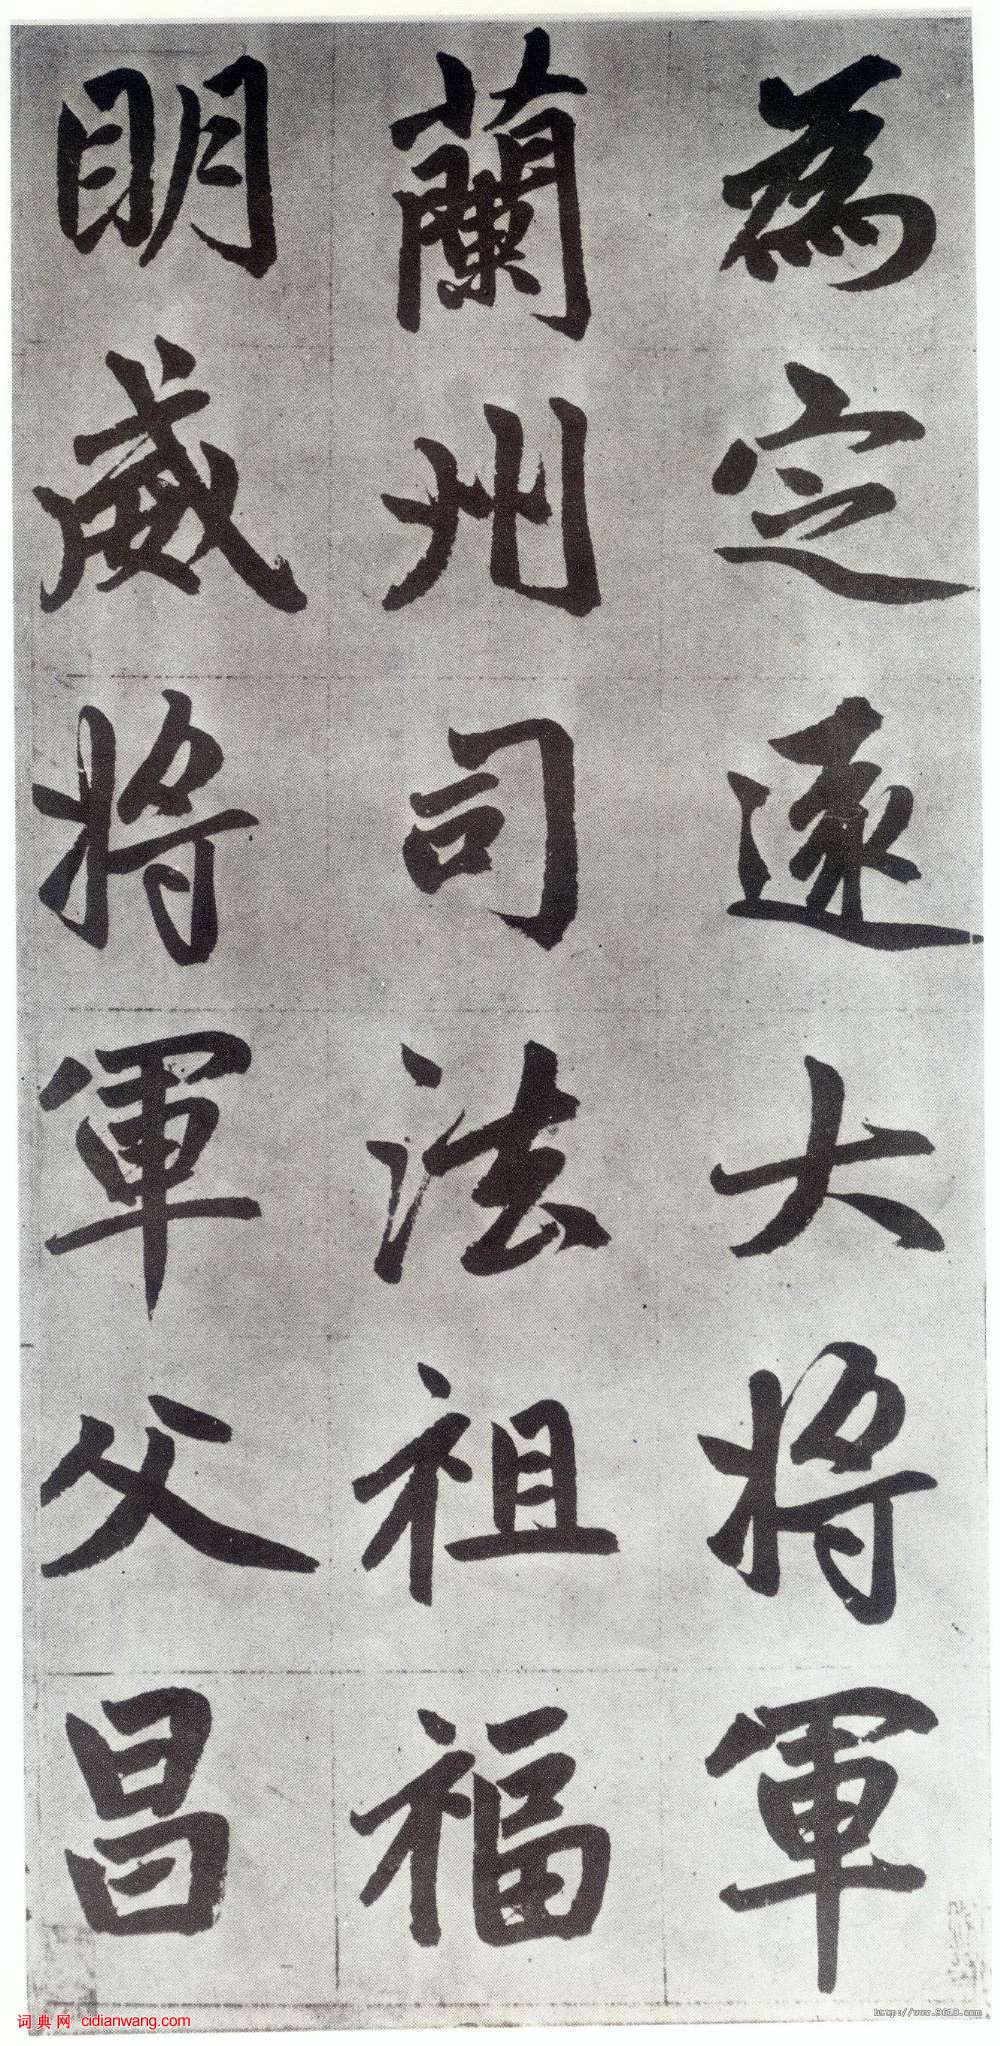 為定遠大將軍
蘭州司法祖福
明威將軍父昌
词典网 cidianwang.com